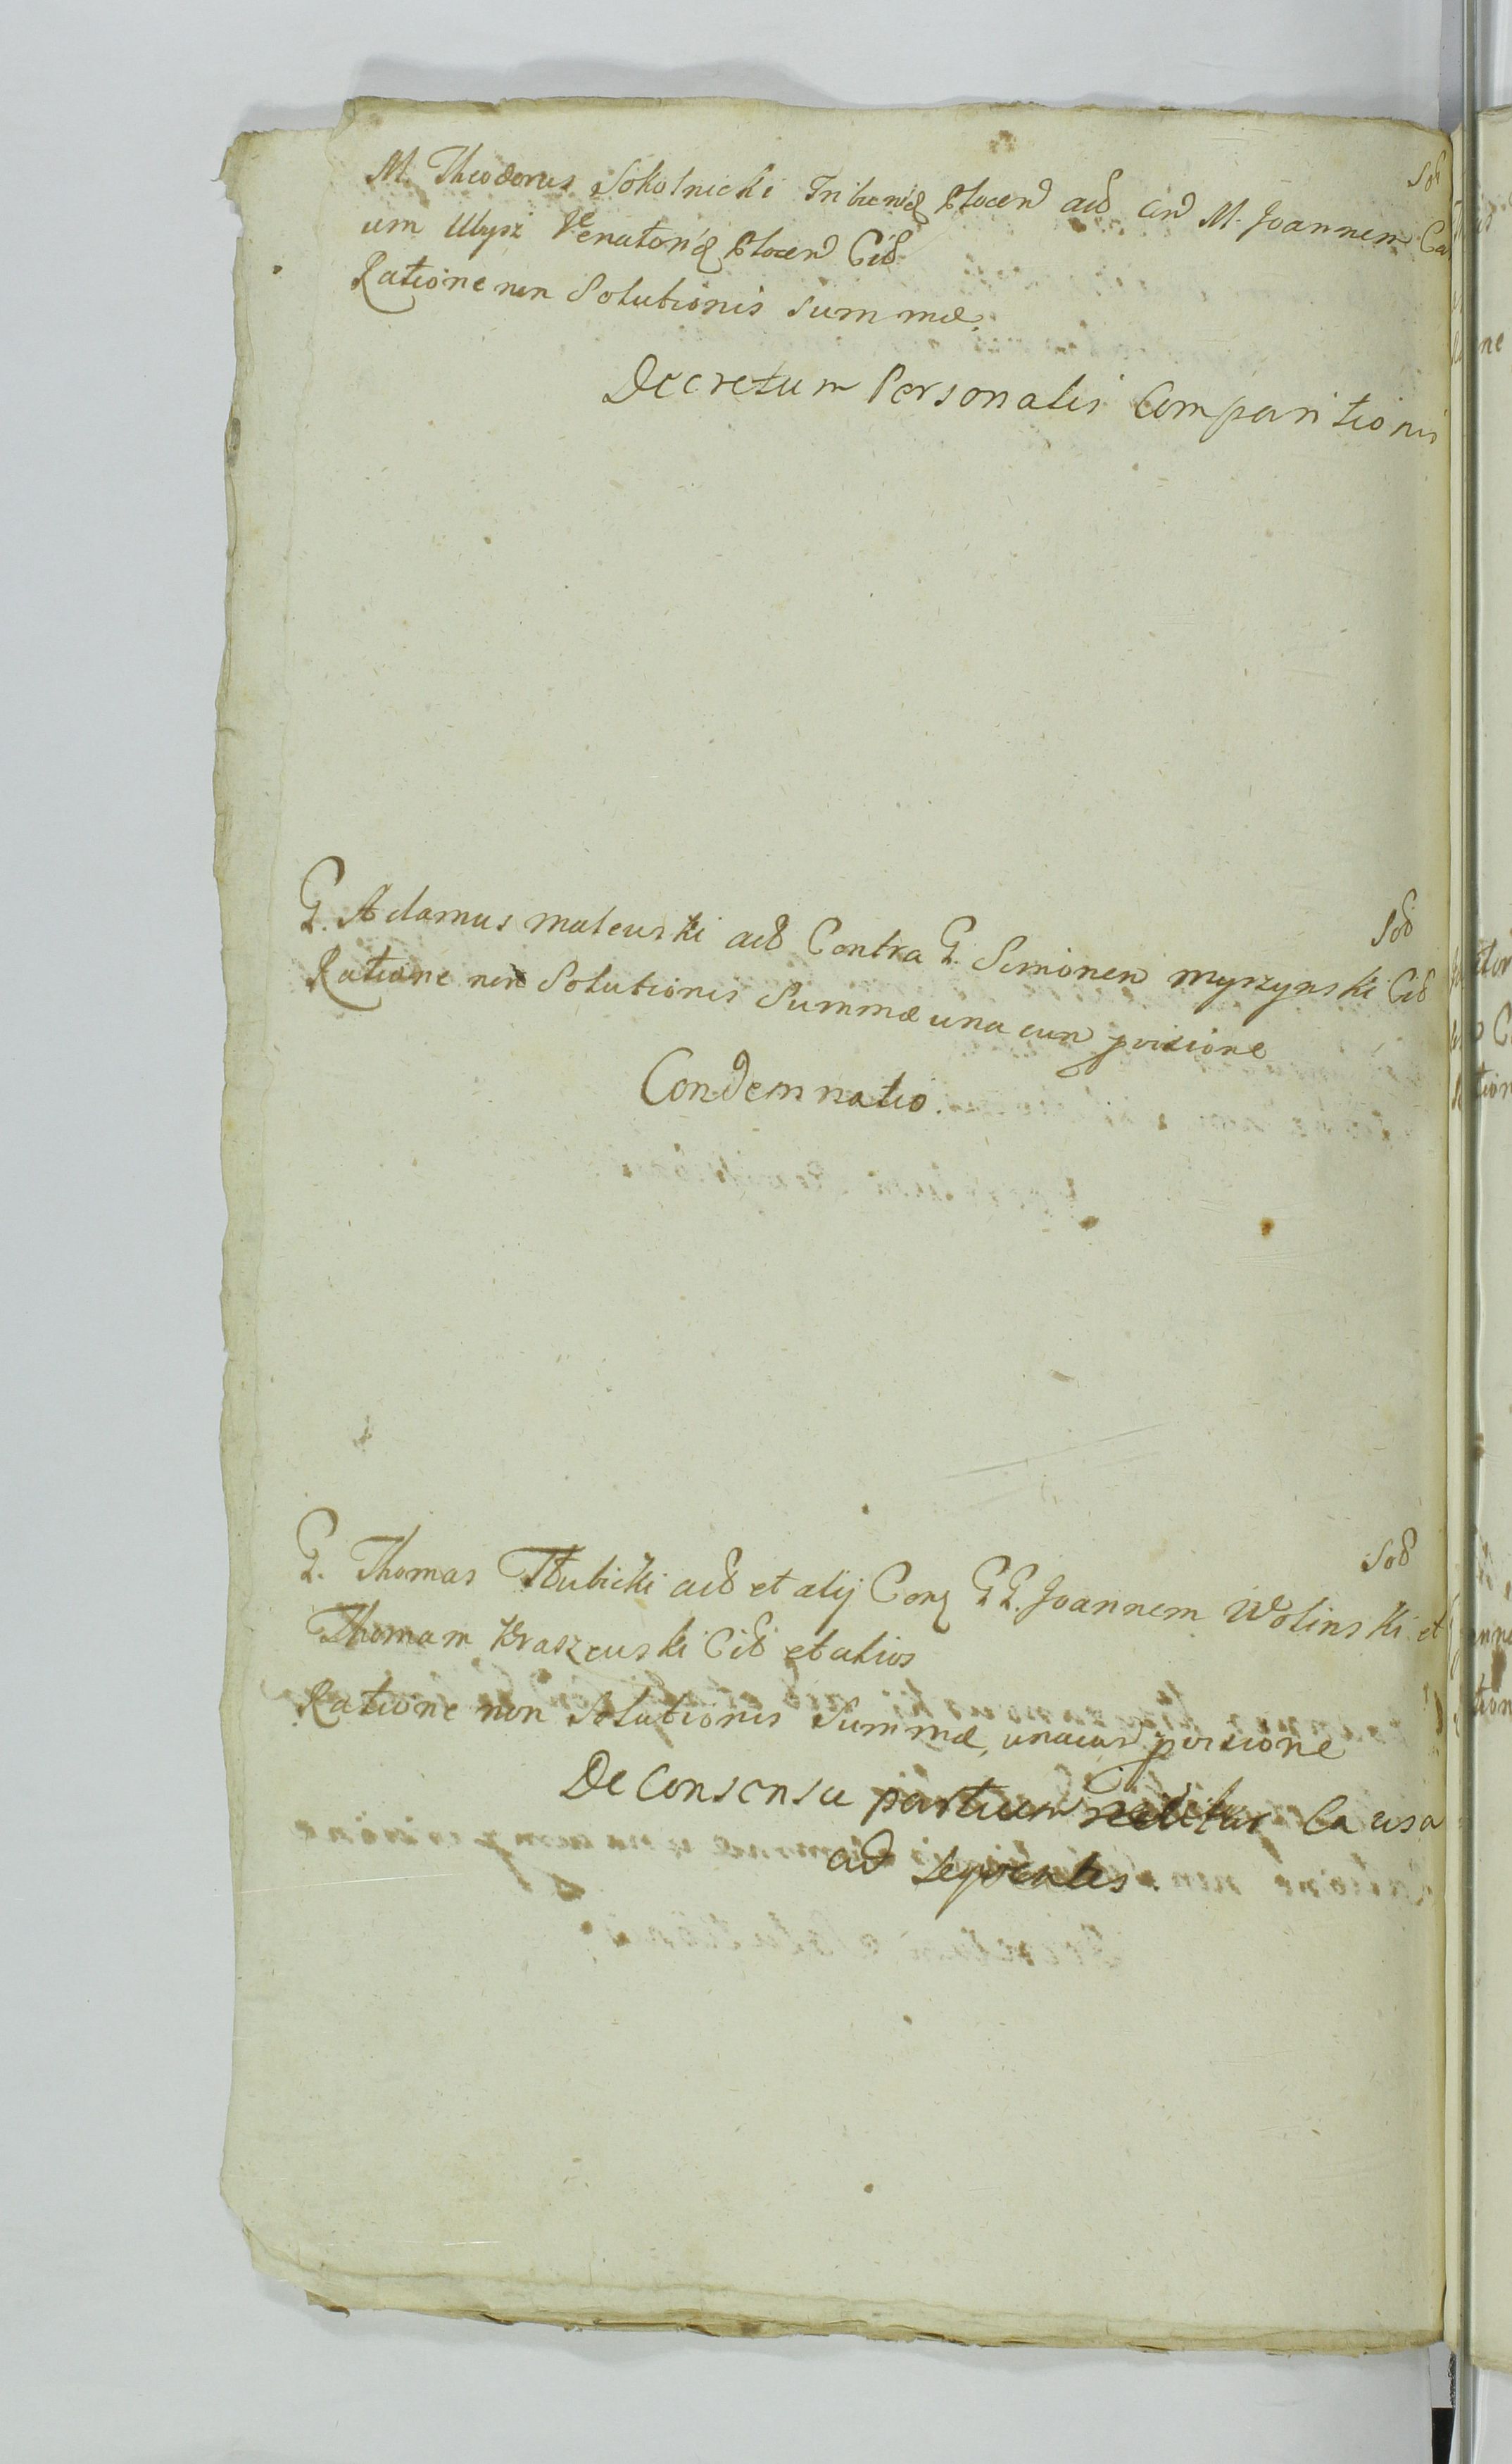 Sol
M. Theodorus Sokolnicki Tribunid Plocen ad cin M. Joannem Ca
um Ulysz Venatorid Plocen Cit
Ratione non Solutionis Summæ.
Decretum Personalis Comparitionis
Sol
G. Adamus maleuski act Contra G. Simonem myrzynski Cit
Ratione non Solutionis Summæ una cum provisione
Condemnatio.
Sol
G. Thomas Tłubicki act et alij Con G G. Joannem Wolinski et
Thomam Kraszeuski Cit et alios
Ratione non Solutionis Summæ, unacum provisione
De Consensu partium Causa
ad